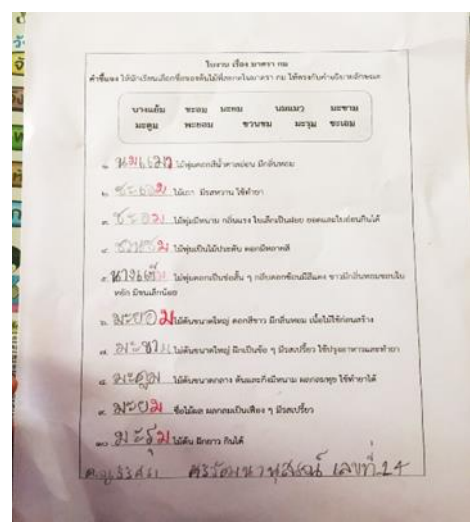 ใบงาน เรื่อง มาตรา กม
คำชี้แจง ให้นักเรียนเลือกชื่อของต้นไม้ที่สะกดในมาตรา กม ให้ตรงกับคำอธิบายลักษณะ
นางแย้ม ชะอม มะยม นมแมว มะขาม
มะตูม พะยอม ชวนชม มะรุม ชะเอม
๑. นมแมว ไม้พุ่มดอกสีน้ำตาลอ่อน มีกลิ่นหอม
๒. ชะเอม ไม้เถา มีรสหวาน ใช้ทำยา
๓. ชะอม ไม้พุ่มมีหนาม กลิ่นแรง ใบเล็กเป็นฝอย ยอดและใบอ่อนกินได้
๔. ชวนชม ไม้พุ่มเป็นไม้ประดับ ดอกมีหลายสี
๕. นางแย้ม ไม้พุ่มดอกเป็นช่อสั้น ๆ กลีบดอกซ้อนมีสีแดง ขาวมีกลิ่นหอมขอบใบ
หยัก มีขนเล็กน้อย
๖. มะยอม ไม้ต้นขนาดใหญ่ ดอกสีขาว มีกลิ่นหอม เนื้อไม้ใช้ก่อสร้าง
๗. มะขาม ไม้ต้นขนาดใหญ่ ฝักเป็นข้อ ๆ มีรสเปรี้ยว ใช้ปรุงอาหารและทำยา
๘. มะตูม ไม้ต้นขนาดกลาง ต้นและกิ่งมีหนาม ผลกลม ใช้ทำยาได้
๙. มะยม ชื่อไม้ผล ผลกลมเป็นเฟือง ๆ มีรสเปรี้ยว
๑๐. มะรุม ไม้ต้น ฝักยาว กินได้
เลขที่ 24